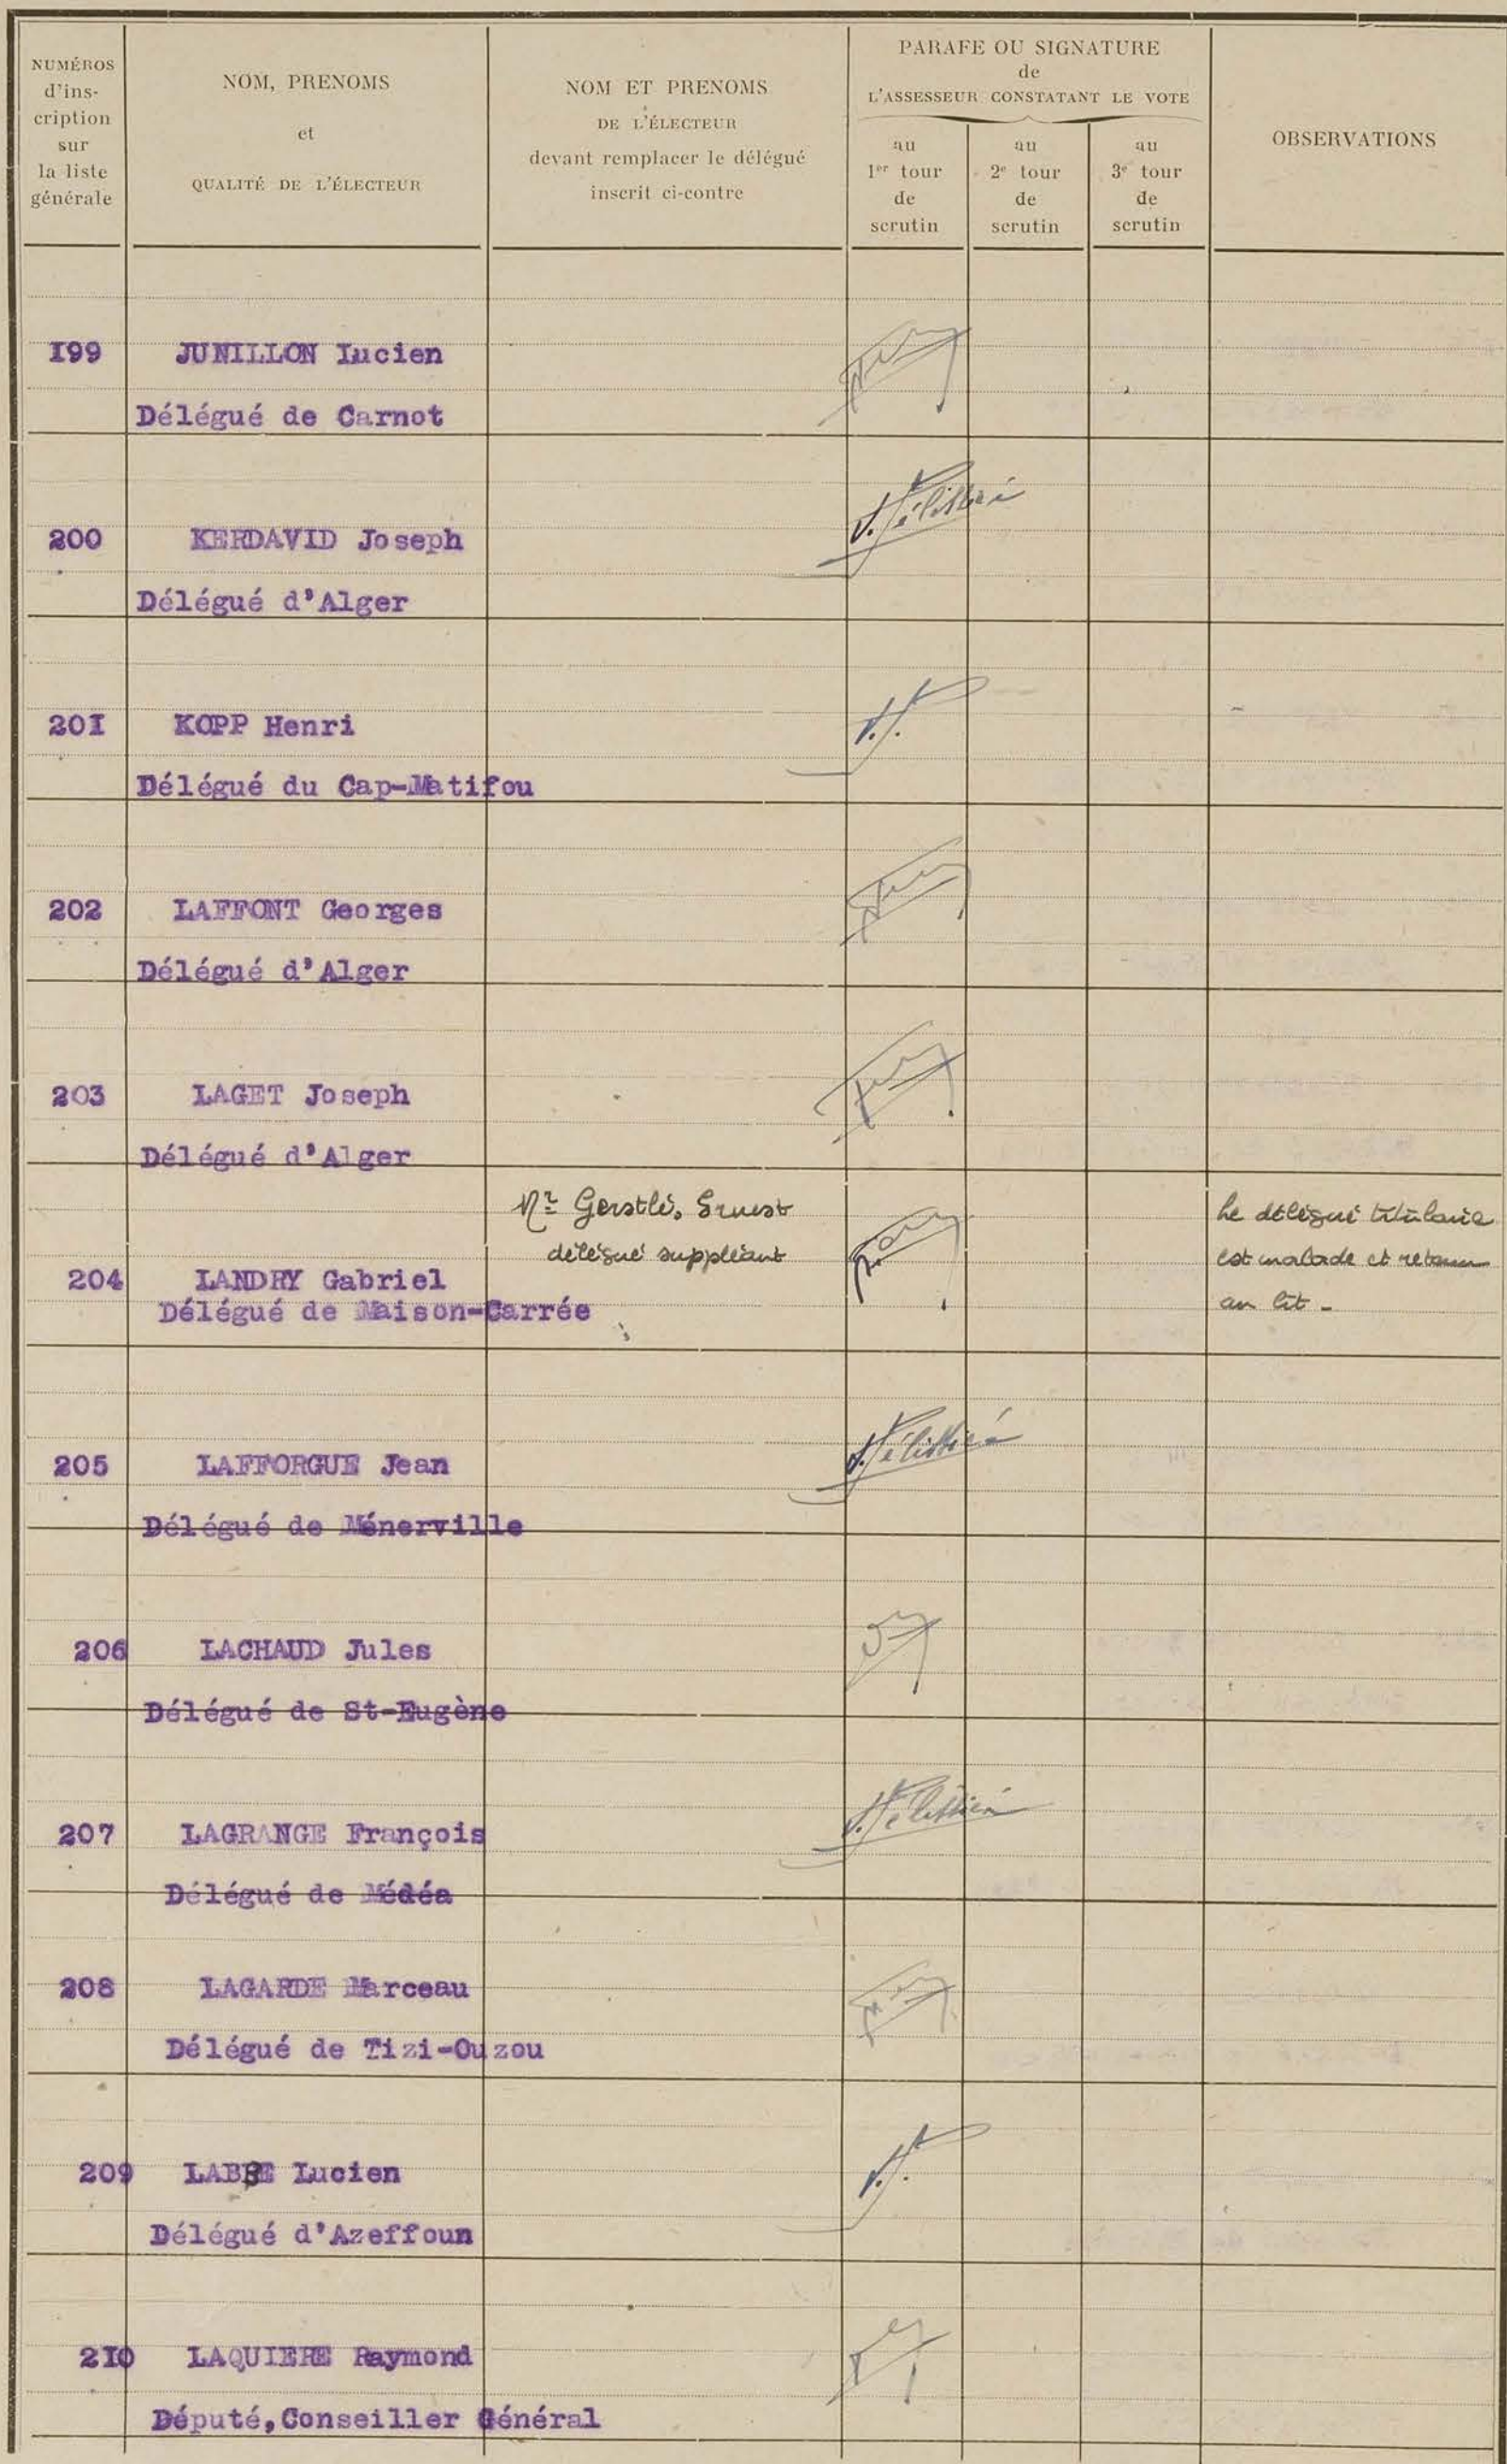 NUMÉROS
d'ins-
cription
sur
la liste
générale
NOM, PRENOMS
et
QUALITÉ DE L'ÉLECTEUR
NOM ET PRENOMS
DE L'ÉLECTEUR
devant remplacer le délégué
inscrit ci-contre
PARAFE OU SIGNATURE
de
L'ASSESSEUR CONSTATANT LE VOTE
au
1er tour
de
scrutin
au
2e tour
de
scrutin
au
3e tour
de
scrutin
OBSERVATIONS
I99 JUNILLON Lucien
Délégué de Carnot
200 KERDAVID Joseph
Délégué d'Alger
20I KOPP Henri
Délégué du Cap-Matifou
202 LAFFONT Georges
Délégué d'Alger
203 LAGET Joseph
Délégué d'Alger
Mr Gerstlé, Ernest
délégué suppléant
Le délégué titulaire
est malade et retenu
au lit -
204 LANDRY Gabriel
Délégué de Maison-Carrée
205 LAFFORGUE Jean
Délégué de Ménerville
206 LACHAUD Jules
Délégué de St-Eugène
207 LAGRANGE François
Délégué de Médéa
208 LAGARDE Marceau
Délégué de Tizi-Ouzou
209 LABBE Lucien
Délégué d'Azeffoun
2I0 LAQUIERE Raymond
Député, Conseiller Général